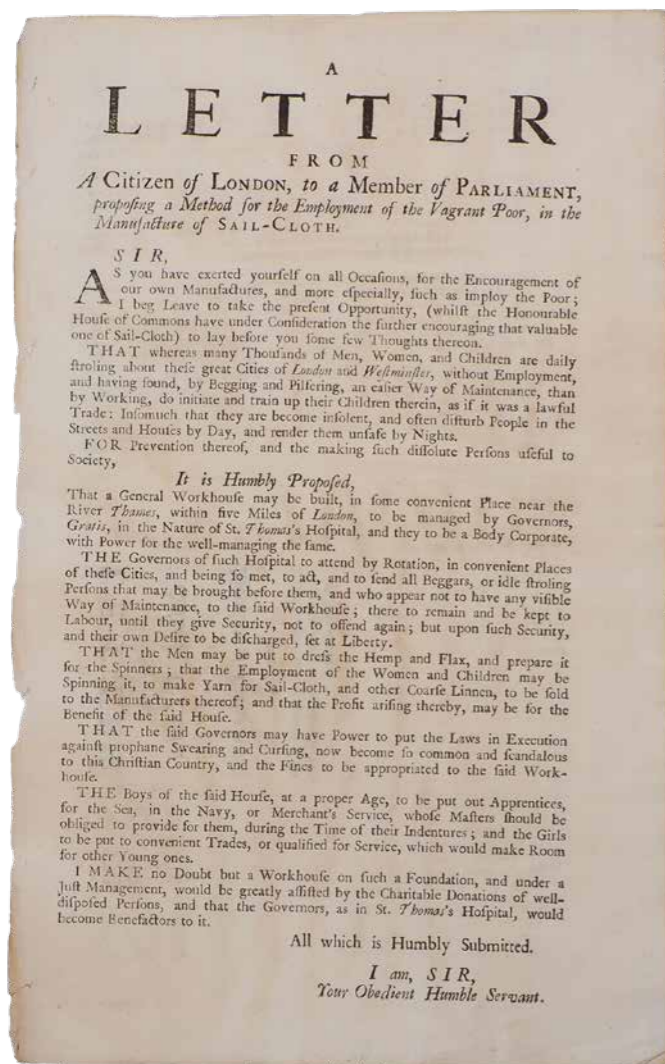 A
LETTER
FROM
A Citizen of LONDON, to a Member of PARLIAMENT,
propoſing a Method for the Employment of the Vagrant Poor, in the
Manufacture of SAIL-CLOTH.
SIR,
AS you have exerted yourſelf on all Occaſions, for the Encouragement of
our own Manufactures, and more eſpecially, ſuch as imploy the Poor;
I beg Leave to take the preſent Opportunity, (whilſt the Honourable
Houſe of Commons have under Conſideration the further encouraging that valuable
one of Sail-Cloth) to lay before you ſome few Thoughts thereon.
THAT whereas many Thouſands of Men, Women, and Children are daily
ſtroling about theſe great Cities of London and Weſtminſter, without Employment,
and having found, by Begging and Pilfering, an eaſier Way of Maintenance, than
by Working, do initiate and train up their Children therein, as if it was a lawful
Trade: Inſomuch that they are become inſolent, and often diſturb People in the
Streets and Houſes by Day, and render them unſafe by Nights.
FOR Prevention thereof, and the making ſuch diſſolute Perſons uſeful to
Society,
It is Humbly Propoſed,
That a General Workhouſe may be built, in ſome convenient Place near the
River Thames, within five Miles of London, to be managed by Governors,
Gratis, in the Nature of St. Thomas's Hoſpital, and they to be a Body Corporate,
with Power for the well-managing the ſame.
THE Governors of ſuch Hoſpital to attend by Rotation, in convenient Places
of theſe Cities, and being ſo met, to act, and to ſend all Beggars, or idle ſtroling
Perſons that may be brought before them, and who appear not to have any viſible
Way of Maintenance, to the ſaid Workhouſe; there to remain and be kept to
Labour, until they give Security, not to offend again; but upon ſuch Security,
and their own Deſire to be diſcharged, ſet at Liberty.
THAT the Men may be put to dreſs the Hemp and Flax, and prepare it
for the Spinners; that the Employment of the Women and Children may be
Spinning it, to make Yarn for Sail-Cloth, and other Coarſe Linnen, to be ſold
to the Manufacturers thereof; and that the Profit ariſing thereby, may be for the
Benefit of the ſaid Houſe.
THAT the ſaid Governors may have Power to put the Laws in Execution
againſt prophane Swearing and Curſing, now become ſo common and ſcandalous
to this Chriſtian Country, and the Fines to be appropriated to the ſaid Work-
houſe.
THE Boys of the ſaid Houſe, at a proper Age, to be put out Apprentices,
for the Sea, in the Navy, or Merchant's Service, whoſe Maſters ſhould be
obliged to provide for them, during the Time of their Indentures; and the Girls
to be put to convenient Trades, or qualified for Service, which would make Room
for other Young ones.
I MAKE no Doubt but a Workhouſe on ſuch a Foundation, and under a
Juſt Management, would be greatly aſſiſted by the Charitable Donations of well-
diſpoſed Perſons, and that the Governors, as in St. Thomas's Hoſpital, would
become Benefactors to it.
All which is Humbly Submitted.
I am, SIR,
Your Obedient Humble Servant.